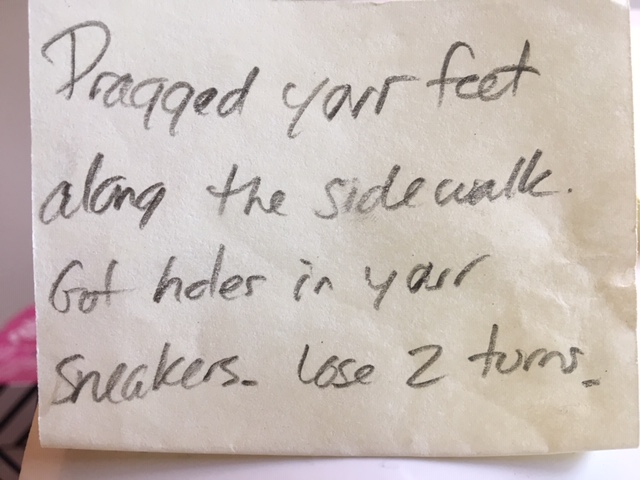 Dragged your feet
along the sidewalk.
Got holes in your
sneakers. Lose 2 turns.